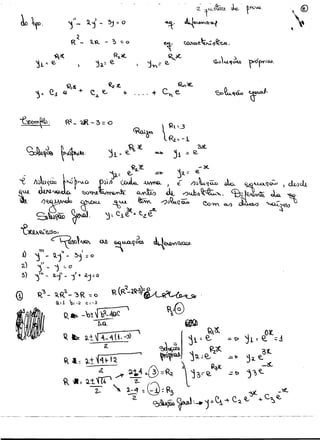 do tipo. y'' - 2y' - 3y = 0 eq. diferencial
R² - 2R - 3 = 0 eq. característica.
y₁ = e^(R₁x), y₂ = e^(R₂x), yₙ = e^(Rₙx) soluções próprias
y = C₁ e^(R₁x) + C₂ e^(R₂x) + .... + Cₙ e^(Rₙx) Solução geral
Exemplo: R² - 2R - 3 = 0
Raizes R₁ = 3
R₂ = -1
Solução própria y₁ = e^(R₁x) => y₁ = e^(3x)
y₂ = e^(R₂x) => y₂ = e^(-x)
é solução própria pois cada uma, é solução da equação, desde
que derivada antes de
de segundo grau que têm solução com as duas raizes
Solução Geral: y = C₁e^(3x) + C₂e^(-x)
Exercício:
Resolver as equações diferenciais
1) y''' - 2y'' - 3y' = 0
2) y'' - y = 0
3) y''' - 2y'' - y' + 2y = 0
① R³ - 2R² - 3R = 0 R(R² - 2R - 3) = 0
a=1 b=-2 c=-3
R = -b ± √(b² - 4ac) / 2a
R = 2 ± √(4 - 4(1.-3)) / 2
R = 2 ± √(4 + 12) / 2
R = 2 ± √16 / 2
2+4 / 2 = ③ = R₂
2-4 / 2 = (-1) = R₃
R₁ = 0
Soluções próprias
y₁ = e^(R₁x) => y₁ = e^(0x) = 1
y₂ = e^(R₂x) => y₂ = e^(3x)
y₃ = e^(R₃x) => y₃ = e^(-x)
Solução Geral: → y = C₁ + C₂ e^(3x) + C₃ e^(-x)